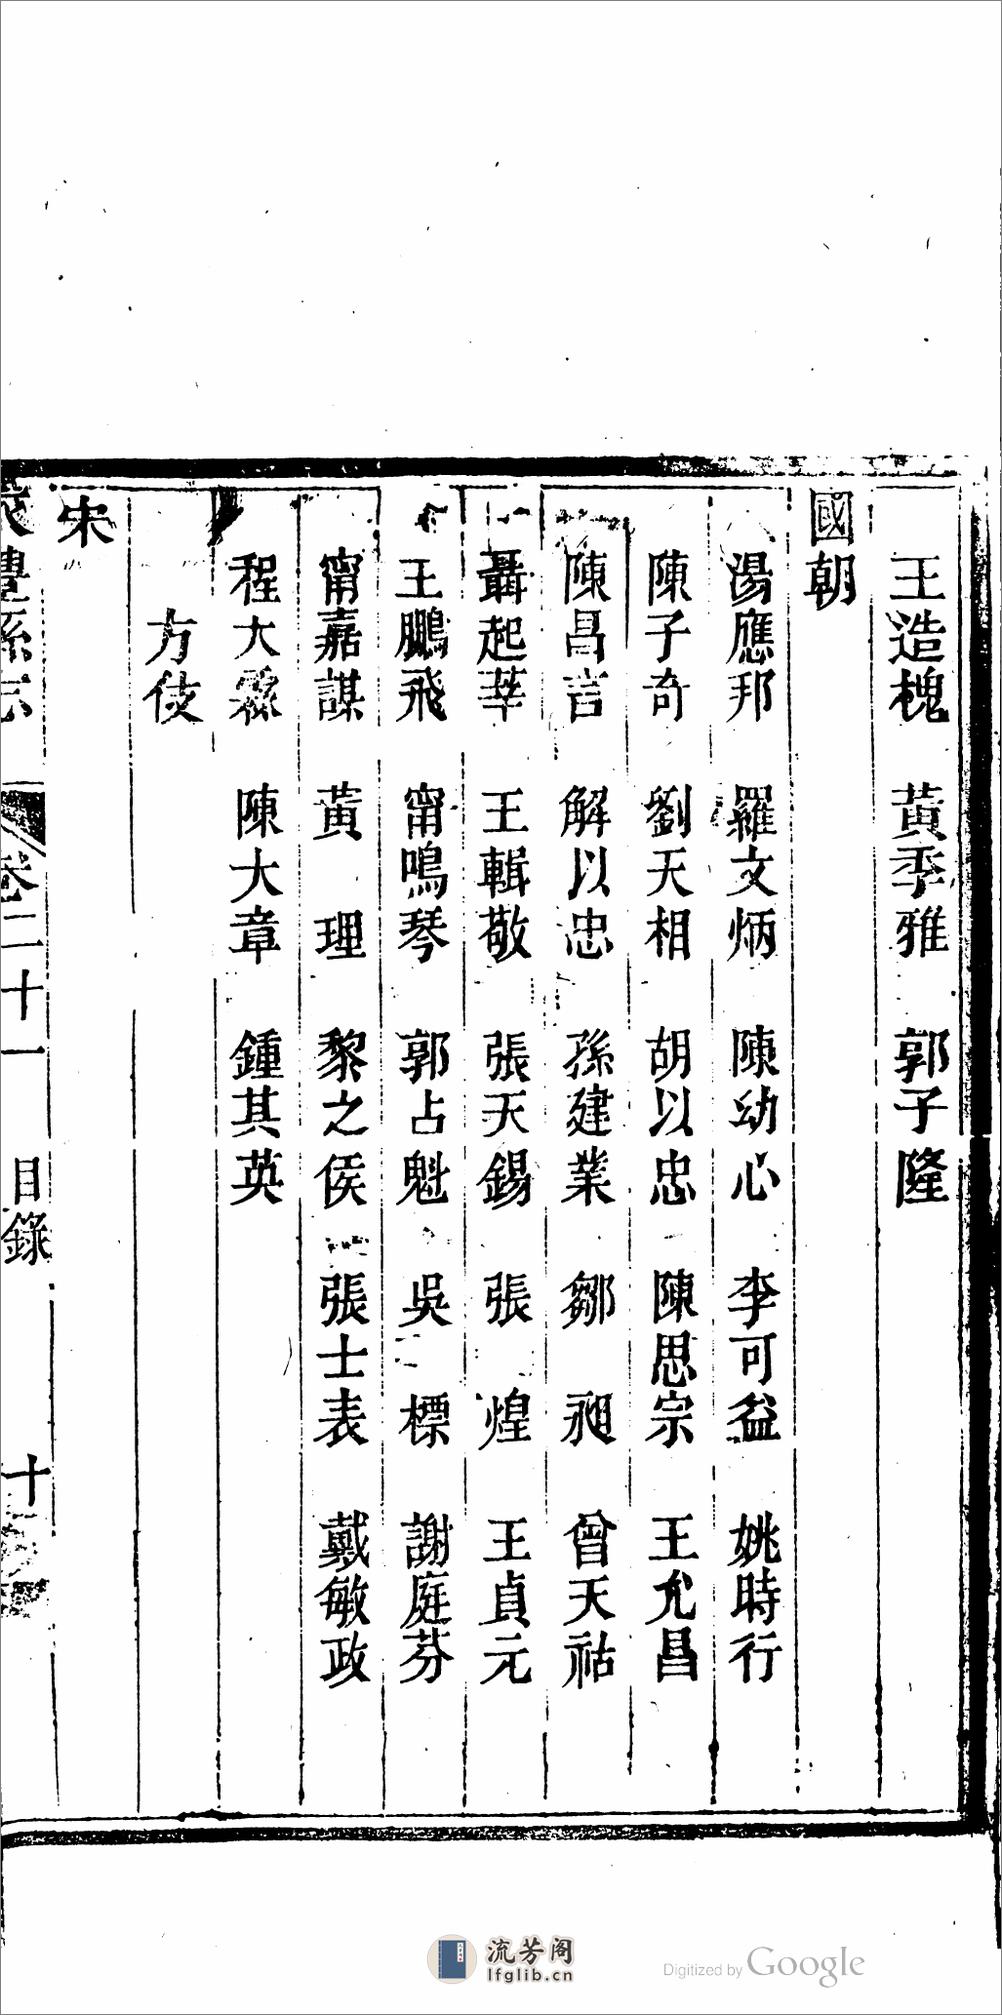 王造槐　黃季雅　郭子隆
國朝
湯應邦　羅文炳　陳幼心　李可益　姚時行
陳子奇　劉天相　胡以忠　陳思宗　王允昌
陳昌言　解以忠　孫建業　鄒昶　曾天祜
聶起莘　王輯敬　張天錫　張煌　王貞元
王鵬飛　甯鳴琴　郭占魁　吳標　謝庭芬
甯嘉謀　黃理　黎之侯　張士表　戴敏政
程大　陳大章　鍾其英
方伎
宋
縣志　卷二十一　目錄　十
流芳阁
lfglib.cn
Digitized by Google